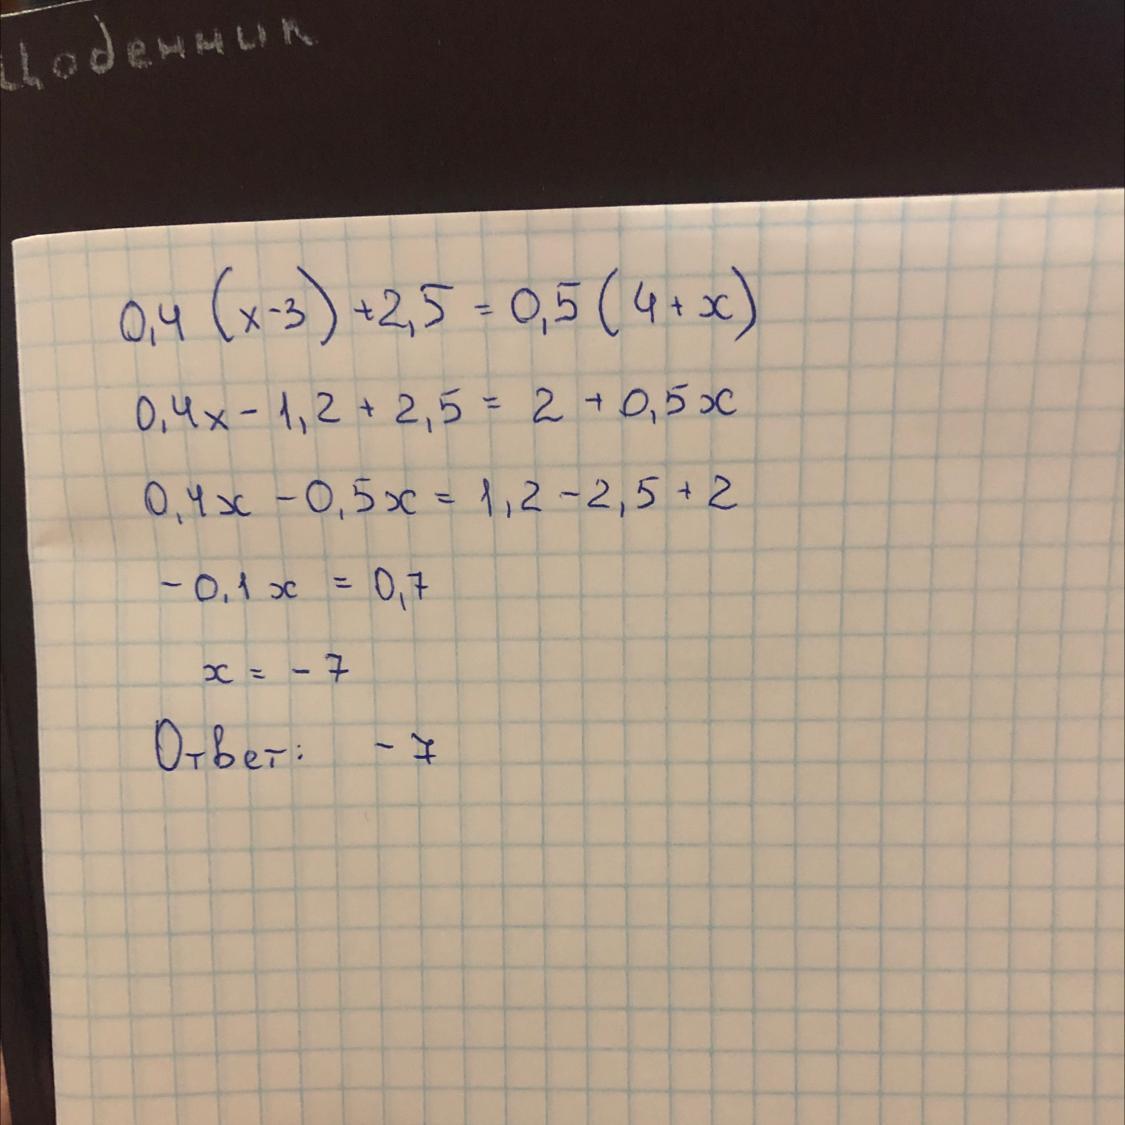 Щоденник
0,4 (x-3) +2,5 = 0,5 (4+x)
0,4x - 1,2 + 2,5 = 2 + 0,5x
0,4x - 0,5x = 1,2 - 2,5 + 2
- 0,1x = 0,7
x = - 7
Ответ: - 7